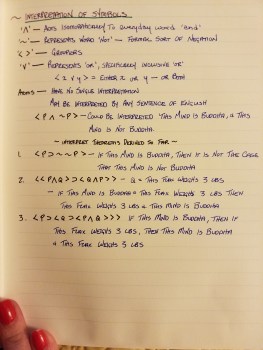 ~ INTERPRETATION OF SYMBOLS
'∧' – ACTS ISOMORPHICALLY TO EVERYDAY WORD 'AND'
'~' – REPRESENTS WORD 'NOT' – FORMAL SORT OF NEGATION
'< >' – GROUPERS
'∨' – REPRESENTS 'OR', SPECIFICALLY INCLUSIVE 'OR'
< x ∨ y > = EITHER x OR y – OR BOTH
ATOMS – HAVE NO SINGLE INTERPRETATION
MAY BE INTERPRETED BY ANY SENTENCE OF ENGLISH
< P ∧ ~ P > – COULD BE INTERPRETED 'THIS MIND IS BUDDHA, & THIS
MIND IS NOT BUDDHA
~ INTERPRET THEOREMS DERIVED SO FAR ~
1. < P ⊃ ~ ~ P > – IF THIS MIND IS BUDDHA, THEN IT IS NOT THE CASE
THAT THIS MIND IS NOT BUDDHA
2. << P ∧ Q > ⊃ < Q ∧ P >> – Q = THIS FLAX WEIGHS 3 LBS
– IF THIS MIND IS BUDDHA & THIS FLAX WEIGHS 3 LBS THEN
THIS FLAX WEIGHS 3 LBS & THIS MIND IS BUDDHA
3. < P ⊃ < Q ⊃ < P ∧ Q >>> IF THIS MIND IS BUDDHA, THEN IF
THIS FLAX WEIGHS 3 LBS, THEN THIS MIND IS BUDDHA
& THIS FLAX WEIGHS 3 LBS